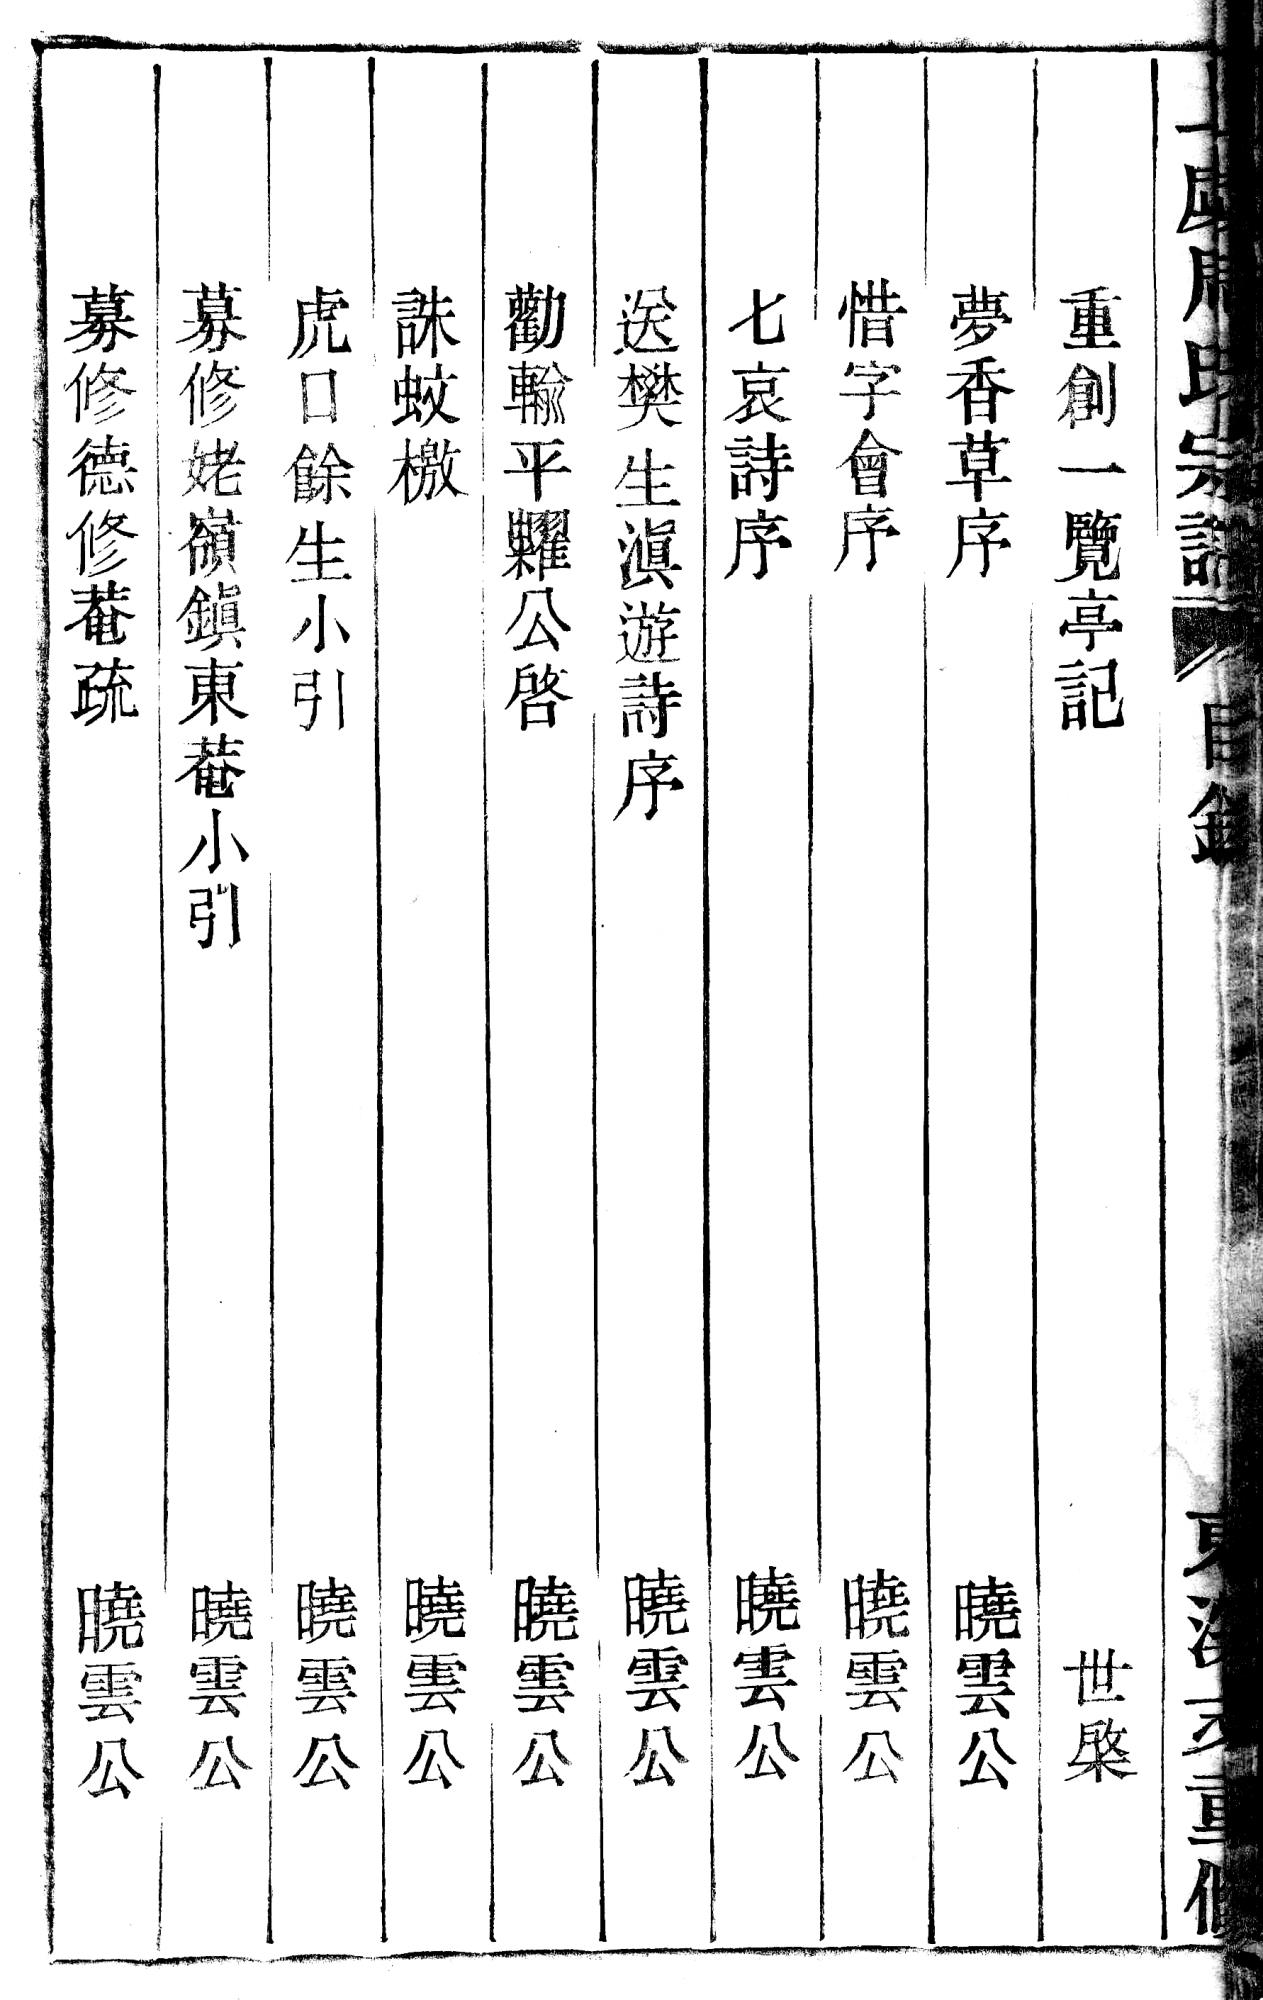 氏宗譜 目錄 重修
重創一覽亭記 世棨
夢香草序 曉雲公
惜字會序 曉雲公
七哀詩序 曉雲公
送樊生滇遊詩序 曉雲公
勸輸平糶公啓 曉雲公
誅蚊檄 曉雲公
虎口餘生小引 曉雲公
募修姥嶺鎭東菴小引 曉雲公
募修德修菴疏 曉雲公